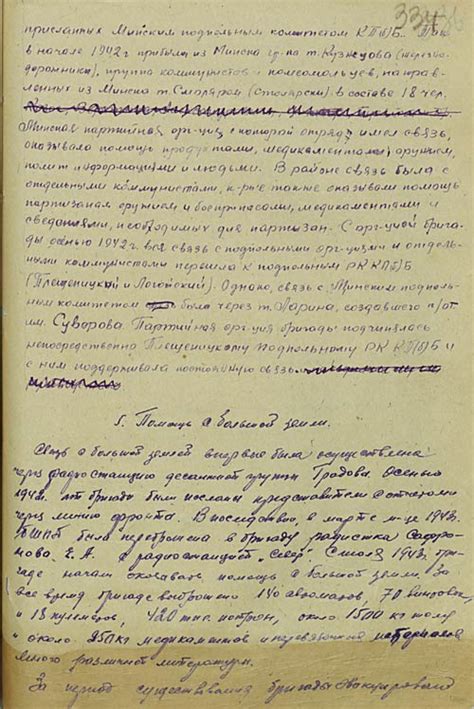 присланных Минским подпольным комитетом КП(б)Б. Так
в начале 1942 г прибыли из Минска гр-па т. Кузнецова (железно-
дорожники), группа коммунистов и комсомольцев, направ-
ленных из Минска т. (Столярский) в составе 18 чел.
Минская партийная орг-ция с которой отряд имел связь,
оказывала помощь продуктами, медикаментами, оружием,
полит информациями и людьми. В районе связь была с
отдельными коммунистами, к-рые также оказывали помощь
партизанам оружием и боеприпасами, медикаментами и
сведениями, необходимых для партизан. С орг-цией брига-
ды осенью 1942 г. вся связь с подпольными орг-циями и отдель-
ными коммунистами перешла к подпольным РК КП(б)Б
(Плещеницкий и Логойский). Однако, связь с Минским подполь-
ным комитетом была через т. Ларина, создавшего п/от
им. Суворова. Партийная орг-ция бригады подчинялась
непосредственно Плещеницкому подпольному РК КП(б)Б и
с ним поддерживала постоянную связь.
5. Помощь с большой земли.
Связь с большой землей впервые была осуществлена
через радиостанцию десантной группы Градова. Осенью
1942 г. от бригады были посланы представители с отчетами
через линию фронта. В последствии, в марте м-це 1943 г.
БШПД была переброшена в бригаду радистка Сафро-
нова Е. А. с радиостанцией "Север". С 1943 г. бри-
гаде начали оказывать помощь с большой земли. За
все время бригаде выброшено 140 автоматов, 70 винтовок,
и 18 пулеметов, 420 тыс патрон, около 1500 кг толу
и около 250 кг медикаментов и перевязочных материалов
много различной литературы.
За период существования бригады эвакуировано